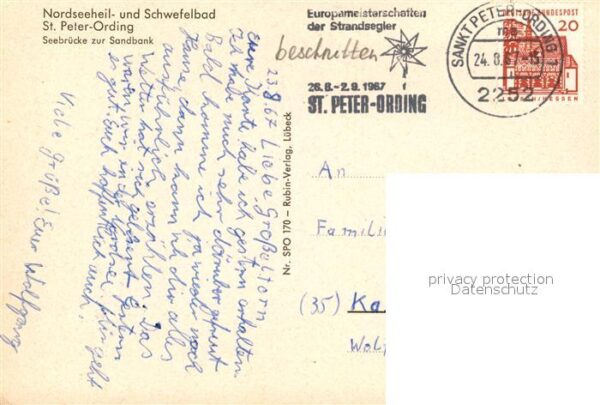 Nordseeheil- und Schwefelbad
St. Peter-Ording
Seebrücke zur Sandbank
Europameisterschaften
der Strandsegler
beschnitten
26.8.-2.9.1967
ST. PETER-ORDING
SANKT PETER-ORDING
24.8.
2252
BUNDESPOST
20
HESSEN
23.8.67 Liebe Großeltern
Eure Karte habe ich gestern erhalten.
Ich habe mich sehr darüber gefreut
Bald komme ich ja wieder nach
Hause, dann kann ich Dir alles
ausführlich erzählen. Das
Wetter hat sich gebessert. Gestern
waren wir in der
es gut. Euch hoffentlich auch!
Viele Grüße! Euer Wolfgang
Nr. SPO 170 – Rubin-Verlag, Lübeck
An
Famili
(35) Ka
Wol
privacy protection
Datenschutz